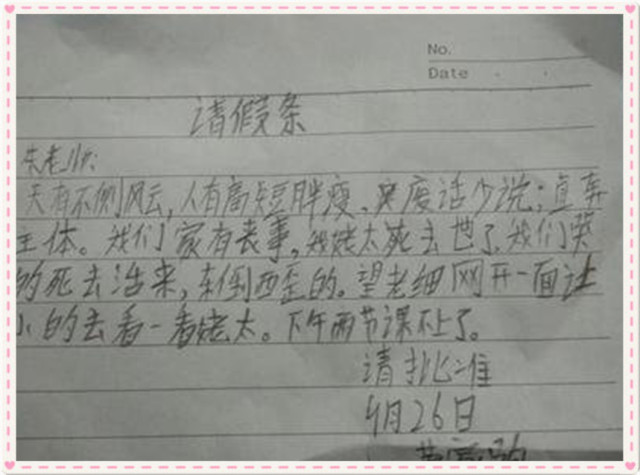 No.
Date
请假条
朱老师:
天有不侧风云,人有高短胖瘦、废话少说;直奔
主体。我们家有丧事,我姥太死去世了,我们哭
的死去活来,东倒西歪的。望老细网开一面让
小的去看一看姥太。下午两节课不上了。
请批准
4月26日